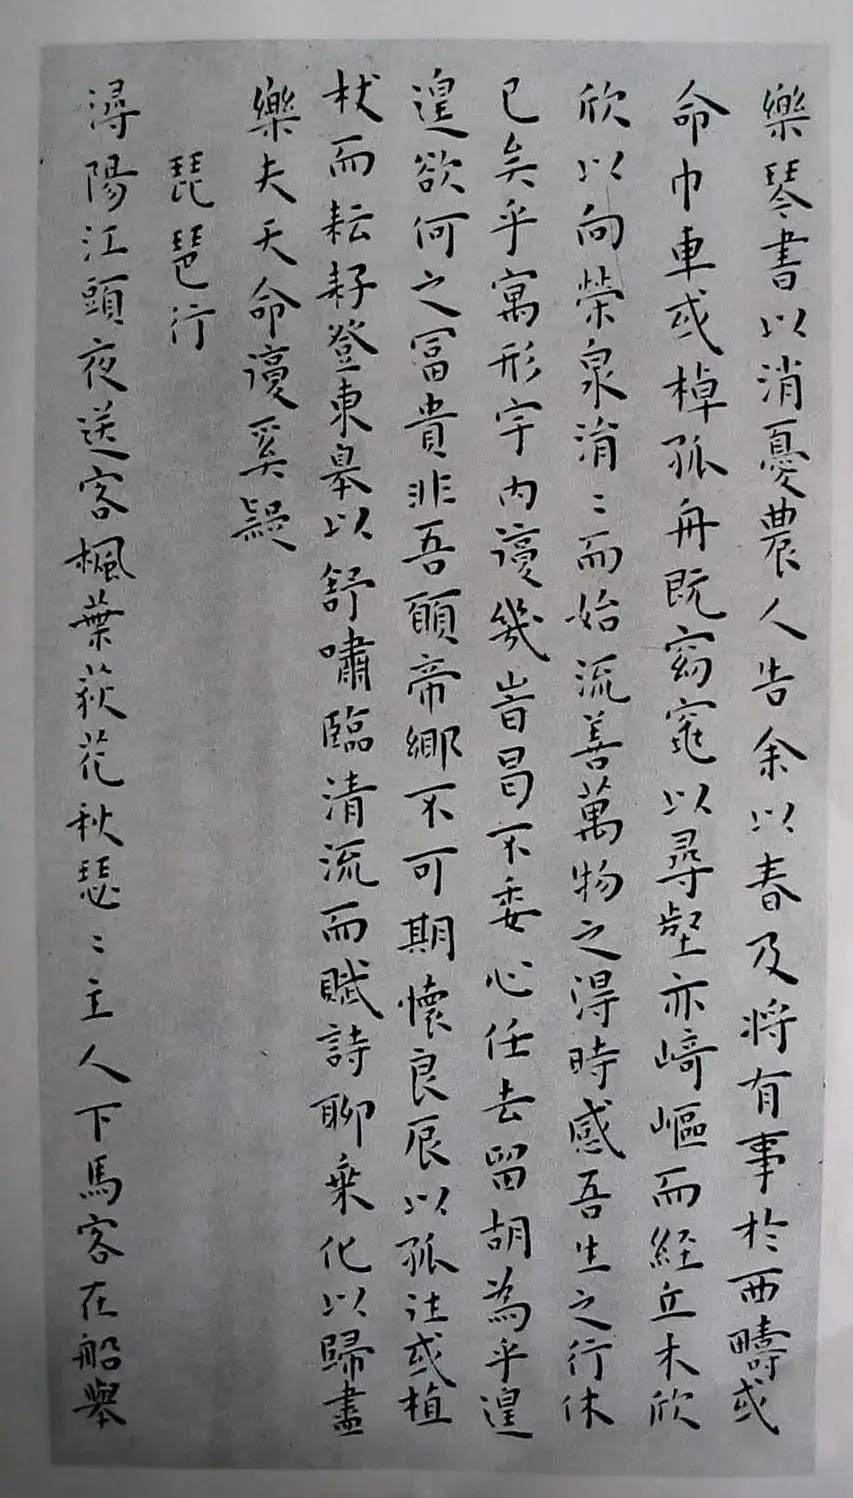 樂琴書以消憂農人告余以春及將有事於西疇或
命巾車或棹孤舟既窈窕以尋壑亦崎嶇而經丘木欣
欣以向榮泉涓〻而始流善萬物之得時感吾生之行休
已矣乎寓形宇内復幾時曷不委心任去留胡為乎遑
遑欲何之冨貴非吾願帝鄉不可期懷良辰以孤往或植
杖而耘耔登東皋以舒嘯臨清流而賦詩聊乘化以歸盡
樂夫天命復奚疑
琵琶行
潯陽江頭夜送客楓葉荻花秋瑟〻主人下馬客在船舉